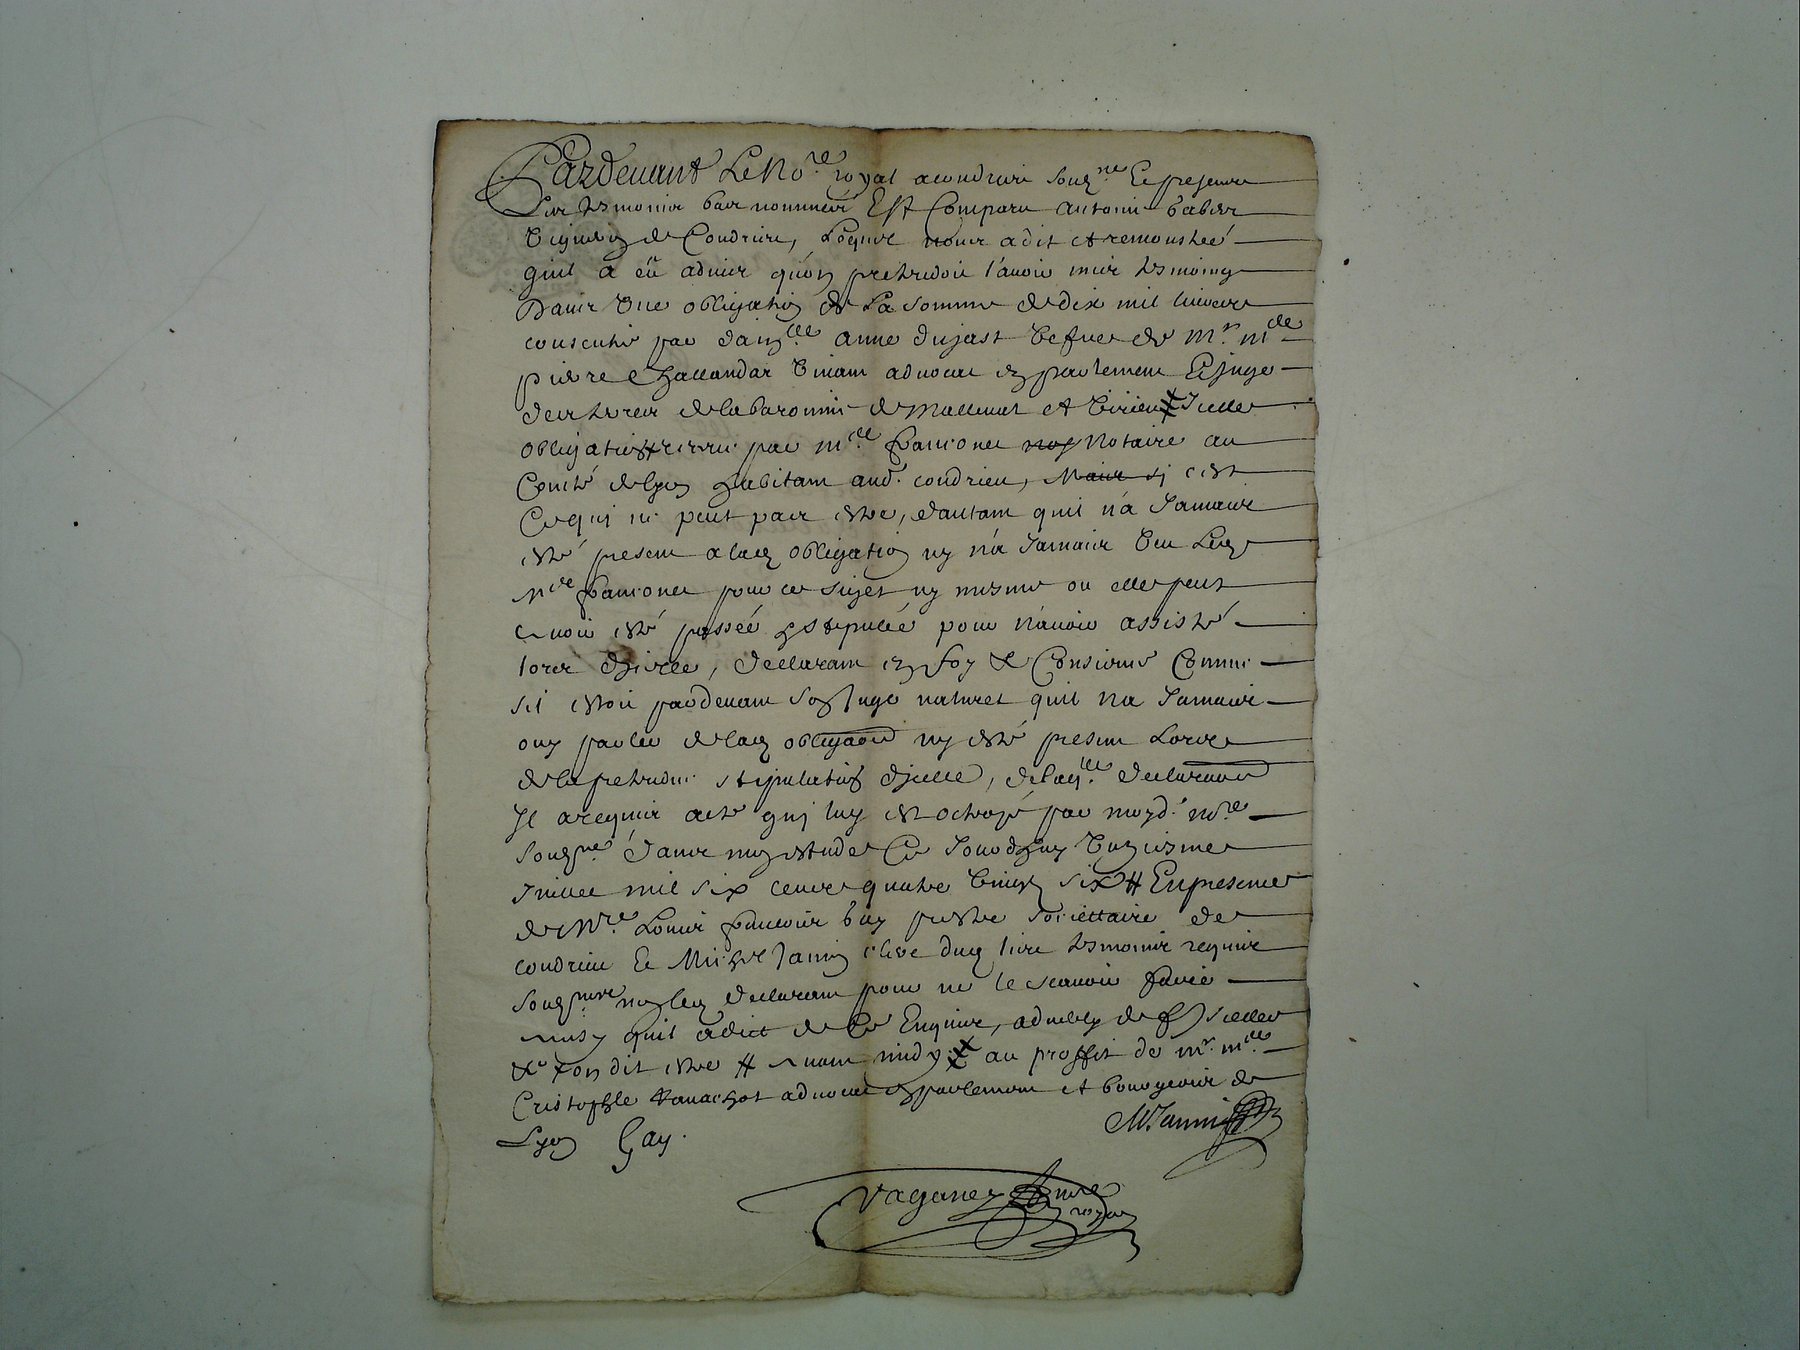 Pardevant Le No.re royal a condrieu souz.né Et presence
Des tesmoins bas nommés Est Comparu antoine
vigneron de Condrieu, Lequel nous a dit et remonstré
quil a eü advis qu'on pretendoit l'avoir mis tesmoing
Dans Une obligation de La somme de dix mil livres
consentie par dam.lle anne dujast vefve de M.r m.re
pierre vivant advocat en parlement Et juge
des terres de la baronnie de Malleval et virieu Icelle
obligation receue par m.re francones Notaire au
Comté de lyon habitant aud. condrieu, Mais si c'est
Ce qui ne peut pas estre, d'autant quil n'a Jamais
esté present a lad obligation ny n'a Jamais veu Led
M.re francones pour ce sujet ny mesme ou elle peut
avoir esté passée & stipulée pour n'avoir assisté
lors d'icelle, declarant en foy & Consience Comme
sil estoit pardevant son Juge naturel quil na Jamais
ouy parler de lad obligaon ny esté present Lors
de la pretendue stipulation d'icelle, de laq.lle declaraon
Il a requis acte qui luy est octroyé par moyd. no.re
souz.né dans mon estude Ce Jourdhuy vingtiesme
Juillet mil six cents quatre vingt six # En presence
de M.re Louis francois buy prestre societtaire de
condrieu Et Michel Janin clerc dud lieu tesmoins requis
souz.nés non led declarant pour ne le scavoir faire
ainsy quil a dict de Ce Enquis, Icelle
lon dit estre # avant midy au proffit de m.r m.re
Cristophle advocat en parlement et bourgeois de
Lyon Gay.
M Jannin
Vaganey no.re
royal